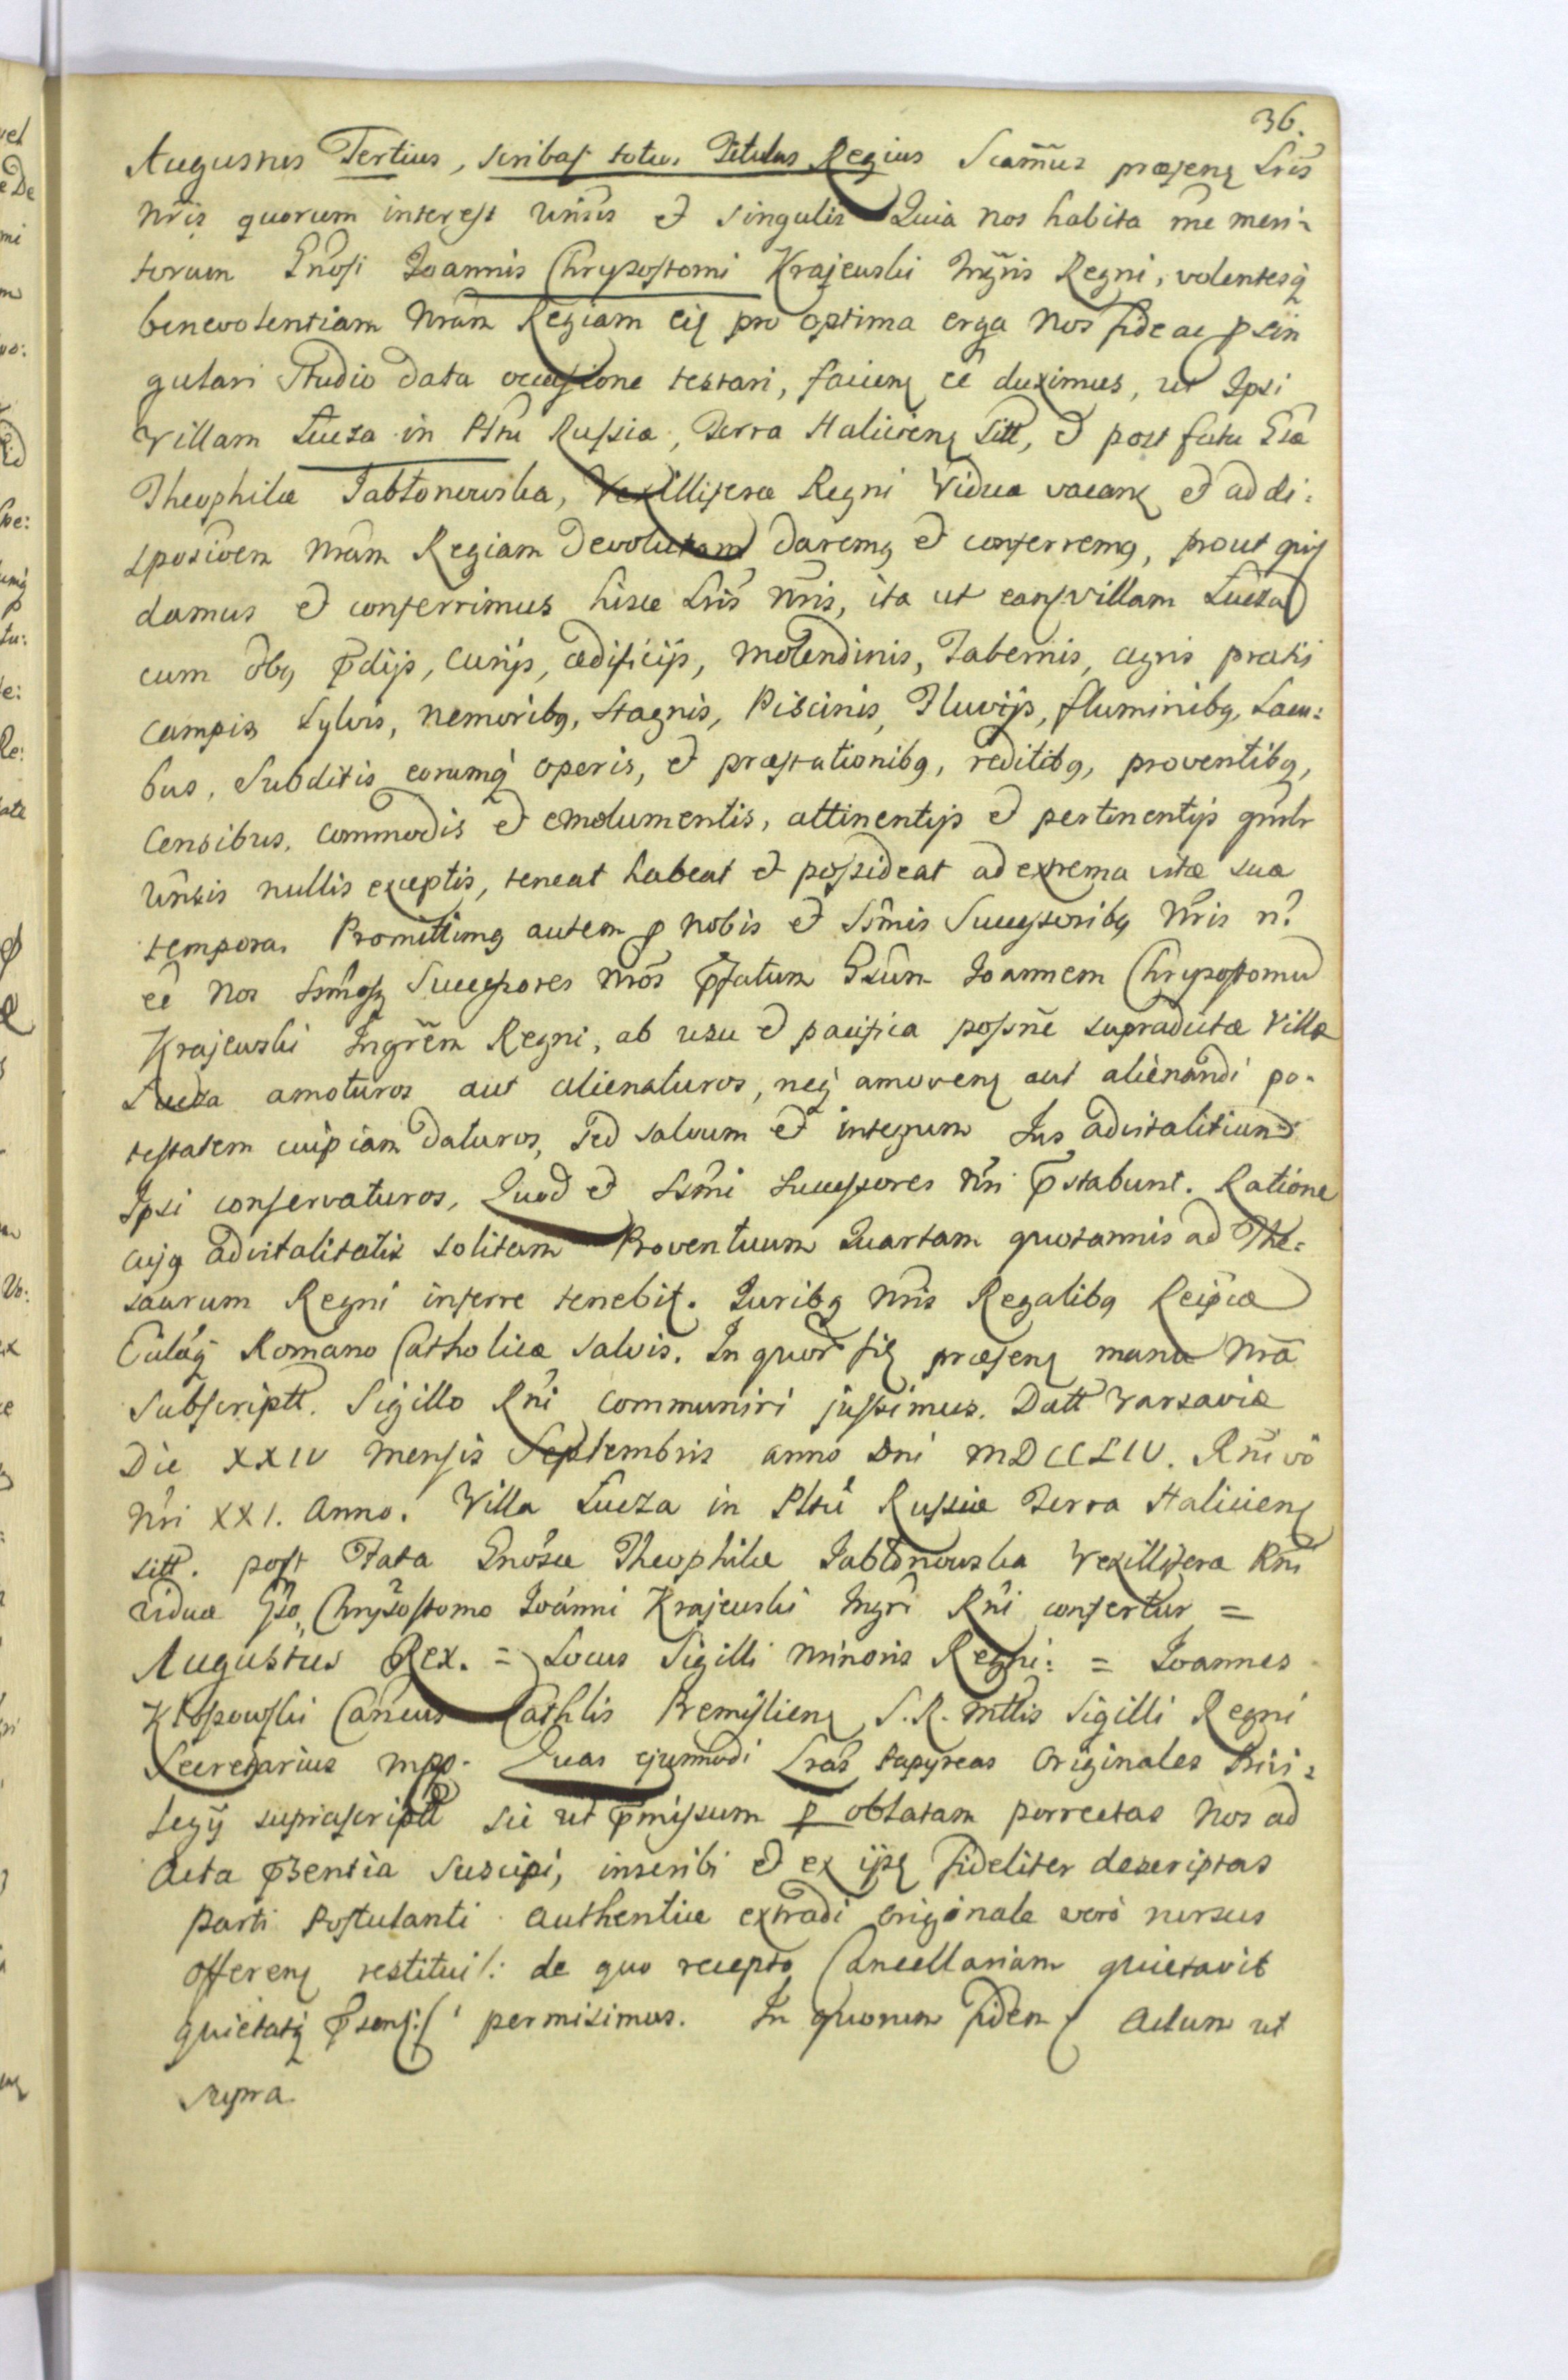 36.
Augustus Tertius, scribat totus Titulus Regius Scam̃us præsenꝫ Lrĩs
Nrĩs quorum interest Unĩsis et singulis Quia nos habita rñe meri:
torum Gnõsi Joannis Chrysostomi Krajewski Ingr̃is Regni, volentesq́
benevolentiam Nrãm Regiam eiꝫ pro optima erga Nos fide ac p sin
gulari studio data occasione testari, facienꝫ eẽ duximus, ut Ipsi
Villam Łucza in Pltũ Russiæ, Terra Halicienꝫ sitt, et post fata Gsæ
Theophilæ Jabłonowska, Vexilliferæ Regni Viduæ vacanꝫ et ad di:
sposiõem Nrãm Regiam devolutam daremꝰ et conferremꝰ, prout quiꝫ
damus et conferrimus hisce Lrĩs Nrĩs, ita ut eanꝫ villam Łucza
cum õbꝰ p̃dijs, curijs, ædificijs, molendinis, Tabernis, agris pratis
campis sylvis, nemoribꝰ, stagnis, Piscinis, Fluvijs, fluminibꝰ, Lacu:
bus, subditis eorumq́ operis, et præstationibꝰ, reditibꝰ, proventibꝰ,
Censibus, commodis et emolumentis, attinentijs et pertinentijs gñlr
Unĩsis nullis exceptis, teneat habeat et possideat ad extrema vitæ suæ
tempora. Promittimꝰ autem p nobis et Ssm̃is Successoribꝰ Nrĩs n̂
eẽ Nos Ssm̃osꝫ Successores Nrõs p̃fatum Gsũm Joannem Chrysostomũ
Krajewski Ingrẽm Regni, ab usu et pacifica possñe supradictæ Villæ
Łucza amoturos aut alienaturos, neq́ amovenꝫ aut alienandi po:
testatem cuipiam daturos, sed salvum et integrum Jus advitalitium
Ipsi conservaturos, Quod et Ssm̃i Successores Nrĩ p̃stabunt. Ratione
cujꝰ advitalitatis solitam Proventuum Quartam quotannis ad The:
saurum Regni inferre tenebiꝫ. Juribꝰ Nrĩs Regalibꝰ Reip̃cæ
Ecclæq́ Romano Catholicæ salvis. In quor̃ fiꝫ præsenꝫ manu Nrã
subscriptt. Sigillo Rñi communiri jussimus. Datt Varsaviæ
Die XXIV Mensis Septembris anno Dni MDCCLIV. Rñi võ
Nrĩ XXI. Anno. Villa Łucza in Pltũ Russiæ Terra Halicienꝫ
sitt. post Fata Gnõsæ Theophilæ Jabłonowska Vexilliferæ Rñi
viduæ Gso, Chrysostomo Joanni Krajewski Ingrĩ Rñi confertur =
Augustus Rex. = Locus Sigilli Minoris Regni: = Joannes
Kłopowski Cañcus Cathlis Premislienꝫ, S. R. Mttis Sigilli Regni
Secretarius mpp. Quas ejusmodi Lrãs Papyreas Originales Privi:
legij suprascriptt sic ut p̃missum p oblatam porrectas Nos ad
Acta p̃sentia suscipi, inscribi et ex ijsꝫ fideliter descriptas
Parti Postulanti authentice extradi originale verò rursus
offerenꝫ restitui /: de quo recepto Cancellariam quietavit
quietatq́ p̃senꝫ :/ permisimus. In quorum fidem Actum ut
supra